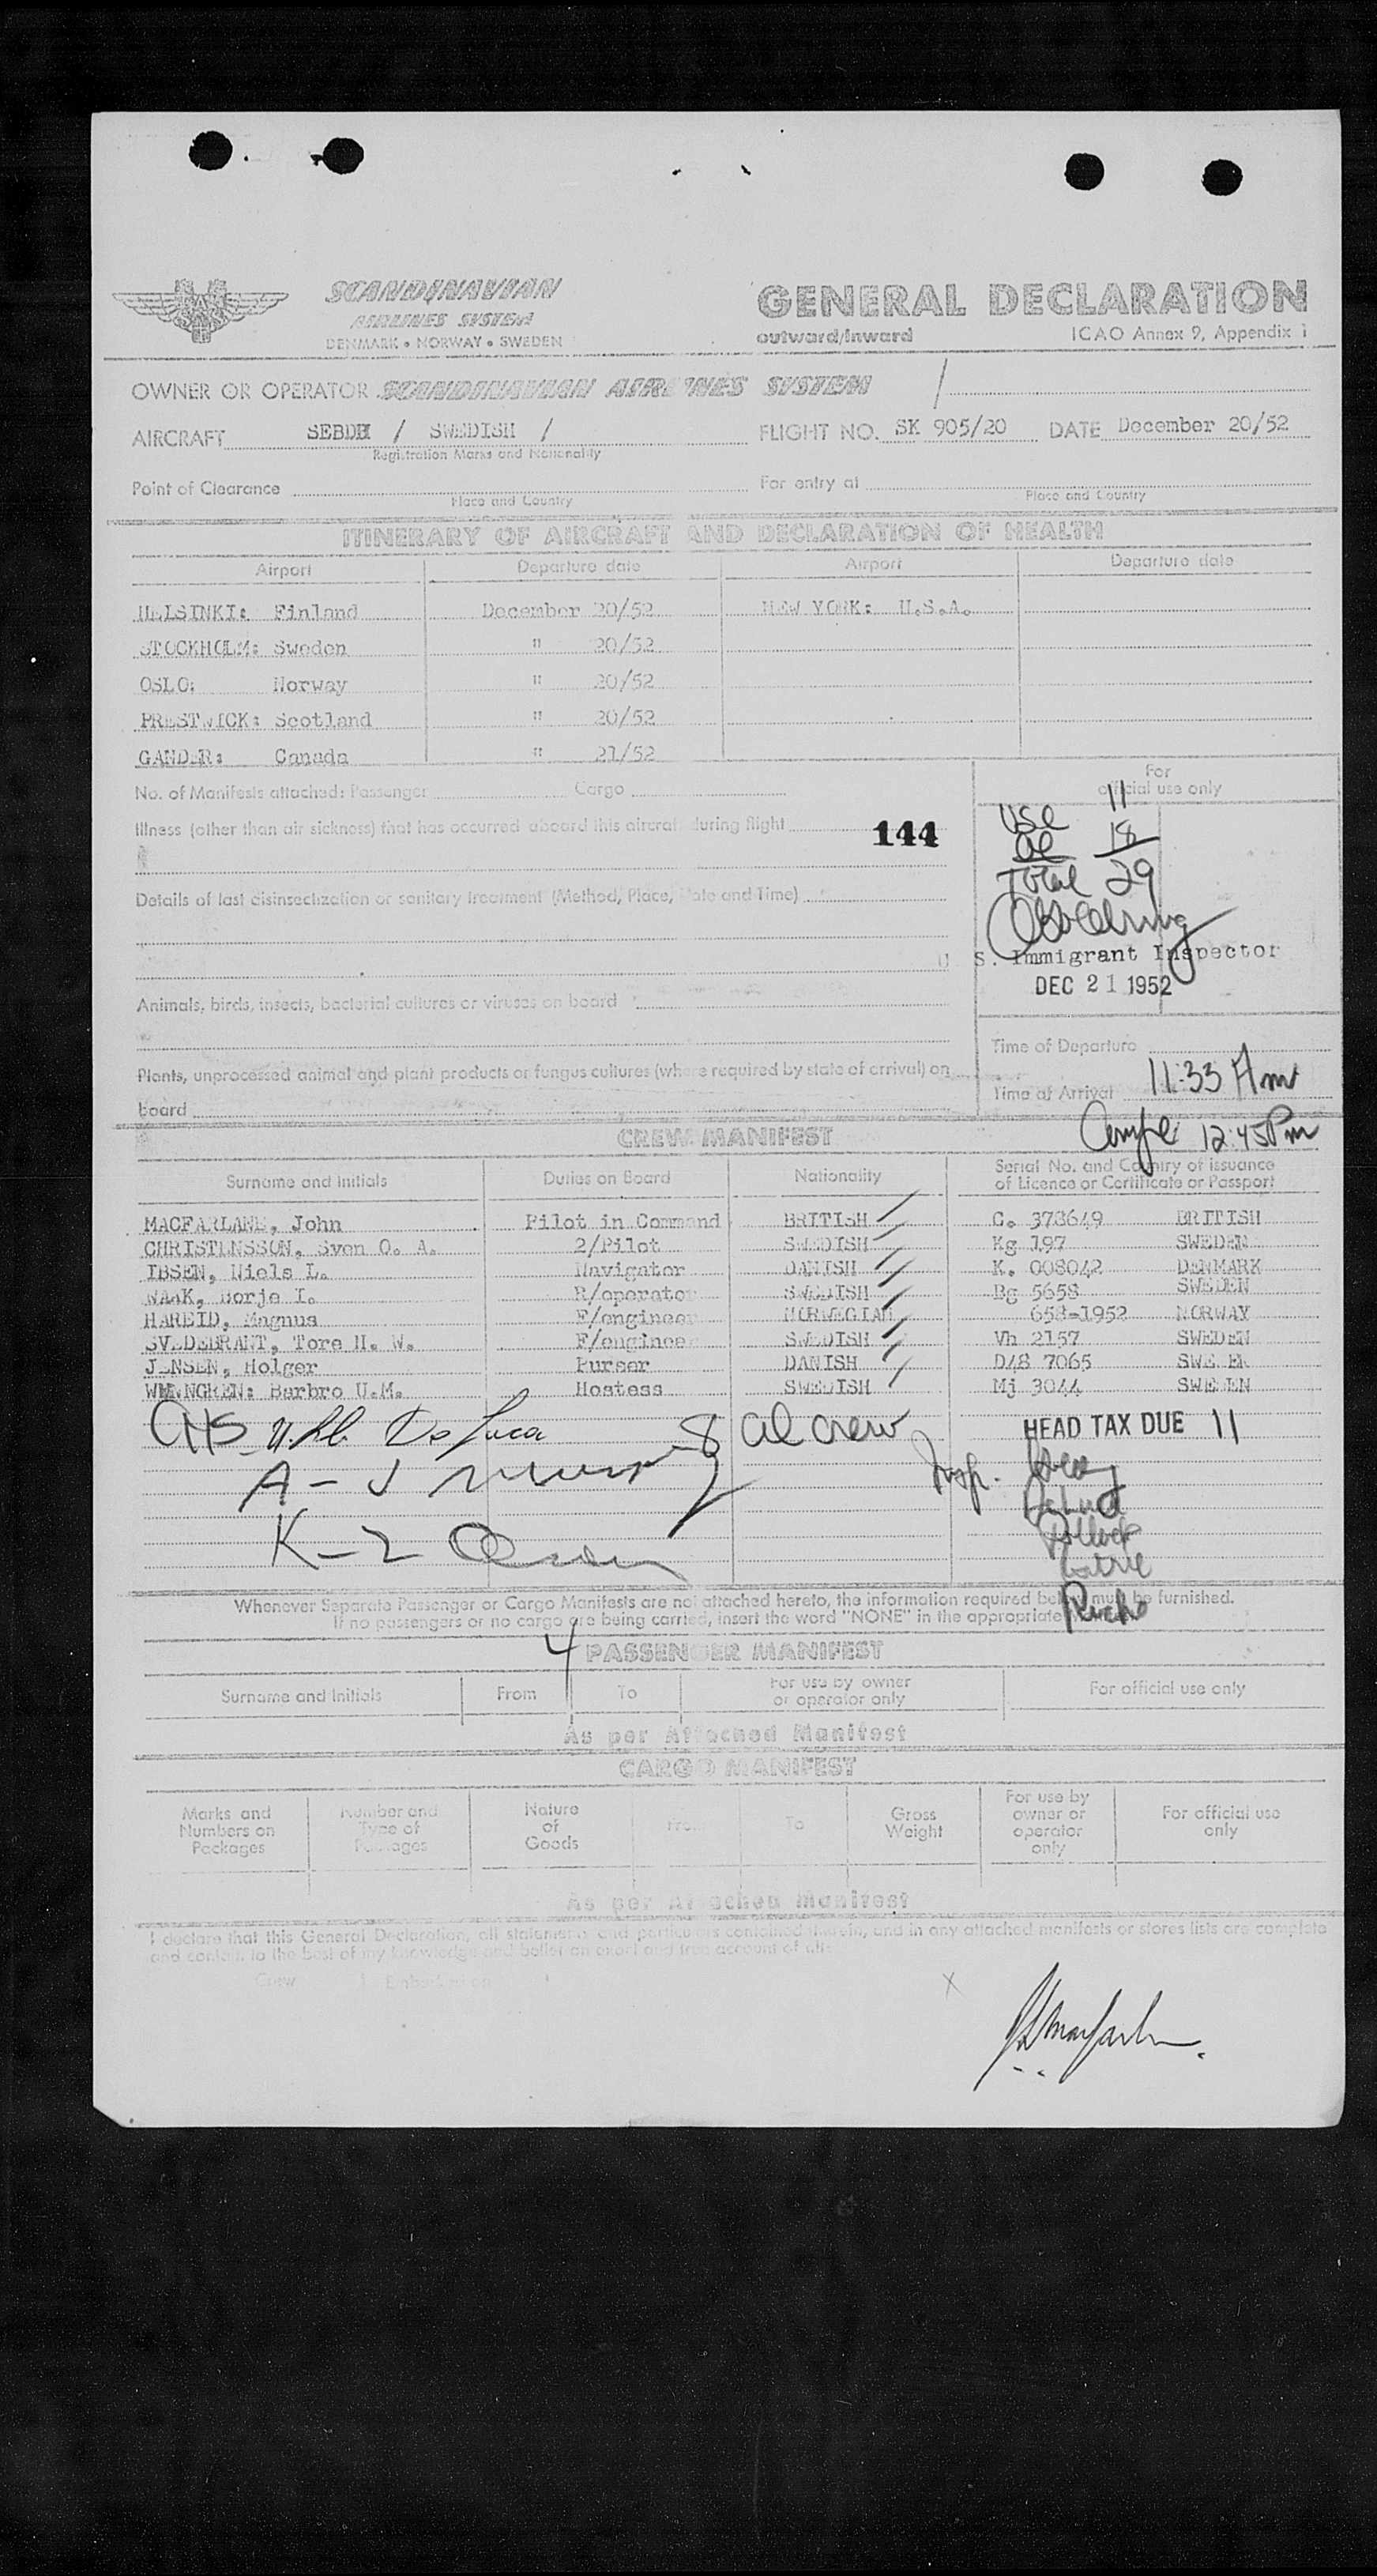 SCANDINAVIAN
AIRLINES SYSTEM
DENMARK • NORWAY • SWEDEN
GENERAL DECLARATION
outward/inward
ICAO Annex 9, Appendix 1
OWNER OR OPERATOR SCANDINAVIAN AIRLINES SYSTEM /
AIRCRAFT SEBDH / SWEDISH / FLIGHT NO. SK 905/20 DATE December 20/52
Registration Marks and Nationality
Point of Clearance For entry at
Place and Country Place and Country
ITINERARY OF AIRCRAFT AND DECLARATION OF HEALTH
Airport Departure date Airport Departure date
HELSINKI: Finland December 20/52 NEW YORK: U.S.A.
STOCKHOLM: Sweden " 20/52
OSLO: Norway " 20/52
PRESTWICK: Scotland " 20/52
GANDER: Canada " 21/52
No. of Manifests attached: Passenger Cargo
For
official use only
Illness (other than air sickness) that has occurred aboard this aircraft during flight
144
USC 11
al 18
Total 29
Details of last disinsectization or sanitary treatment (Method, Place, Date and Time)
U S. Immigrant Inspector
DEC 21 1952
Animals, birds, insects, bacterial cultures or viruses on board
Time of Departure
Plants, unprocessed animal and plant products or fungus cultures (where required by state of arrival) on
board
Time of Arrival 11:33 Am
12:45 Pm
CREW MANIFEST
Surname and Initials Duties on Board Nationality Serial No. and Country of issuance
of Licence or Certificate or Passport
MACFARLANE, John Pilot in Command BRITISH C. 378649 BRITISH
CHRISTENSSON, Sven O. A. 2/Pilot SWEDISH Kg 197 SWEDEN
IBSEN, Niels L. Navigator DANISH K. 008042 DENMARK
WAAK, Borje I. R/operator SWEDISH Bg 5658 SWEDEN
HAREID, Magnus F/engineer NORWEGIAN 658-1952 NORWAY
SVEDEBRANT, Tore H. W. F/engineer SWEDISH Vh 2157 SWEDEN
JENSEN, Holger Purser DANISH D/S 7065 SWE EN
WENNGREN: Barbro U.M. Hostess SWEDISH Mj 3044 SWE EN
CHS De Luca 8 al crew
HEAD TAX DUE 11
A - J Murray
Insp.
DeLuca
Pollock
K - 2
Whenever Separate Passenger or Cargo Manifests are not attached hereto, the information required below must be furnished.
If no passengers or no cargo are being carried, insert the word "NONE" in the appropriate
4
PASSENGER MANIFEST
Surname and Initials From To For use by owner
or operator only For official use only
As per Attached Manifest
CARGO MANIFEST
Marks and
Numbers on
Packages Number and
Type of
Packages Nature
of
Goods From To Gross
Weight For use by
owner or
operator
only For official use
only
As per Attached Manifest
I declare that this General Declaration, all statements and particulars contained therein, and in any attached manifests or stores lists are complete
and contain to the best of my knowledge and belief an exact and true account of all:
Crew Embarkation
X